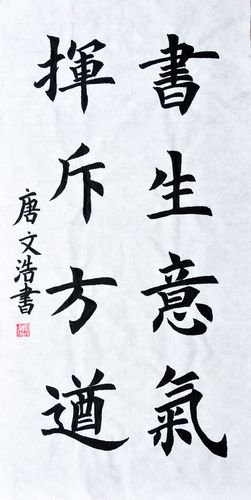 書生意氣
揮斥方遒
唐文浩書